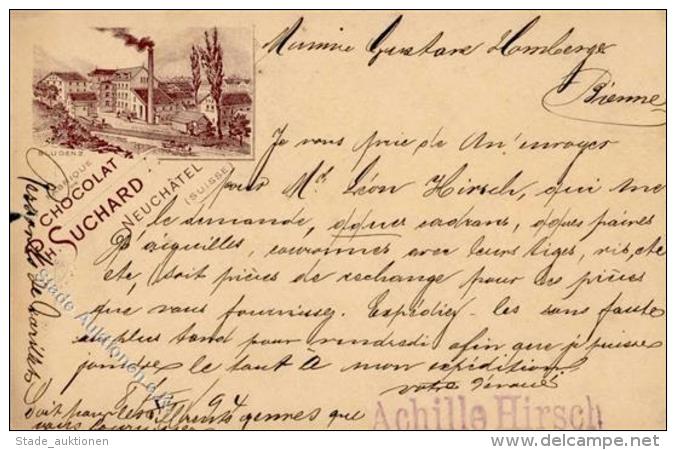 BLUDENZ
FABRIQUE
CHOCOLAT
PH. SUCHARD
NEUCHÂTEL
(SUISSE)
Gustave Homberger
Bienne
Je vous prie de m'envoyer
pour Mr. Léon Hirsch, qui me
le demande, qques cadrans, qques paires
d'aiguilles, couronnes avec leurs tiges, vis, etc
etc, soit pièces de rechange pour les pièces
que vous fournissez. Expédiez-les sans faute
au plus tard pour vendredi afin que je puisse
joindre le tout à mon expédition
votre dévoué
94
Achille Hirsch
Soit pour les différents genres que
vous
Stade Auktionen
Stade_auktionen
www.delcampe.net